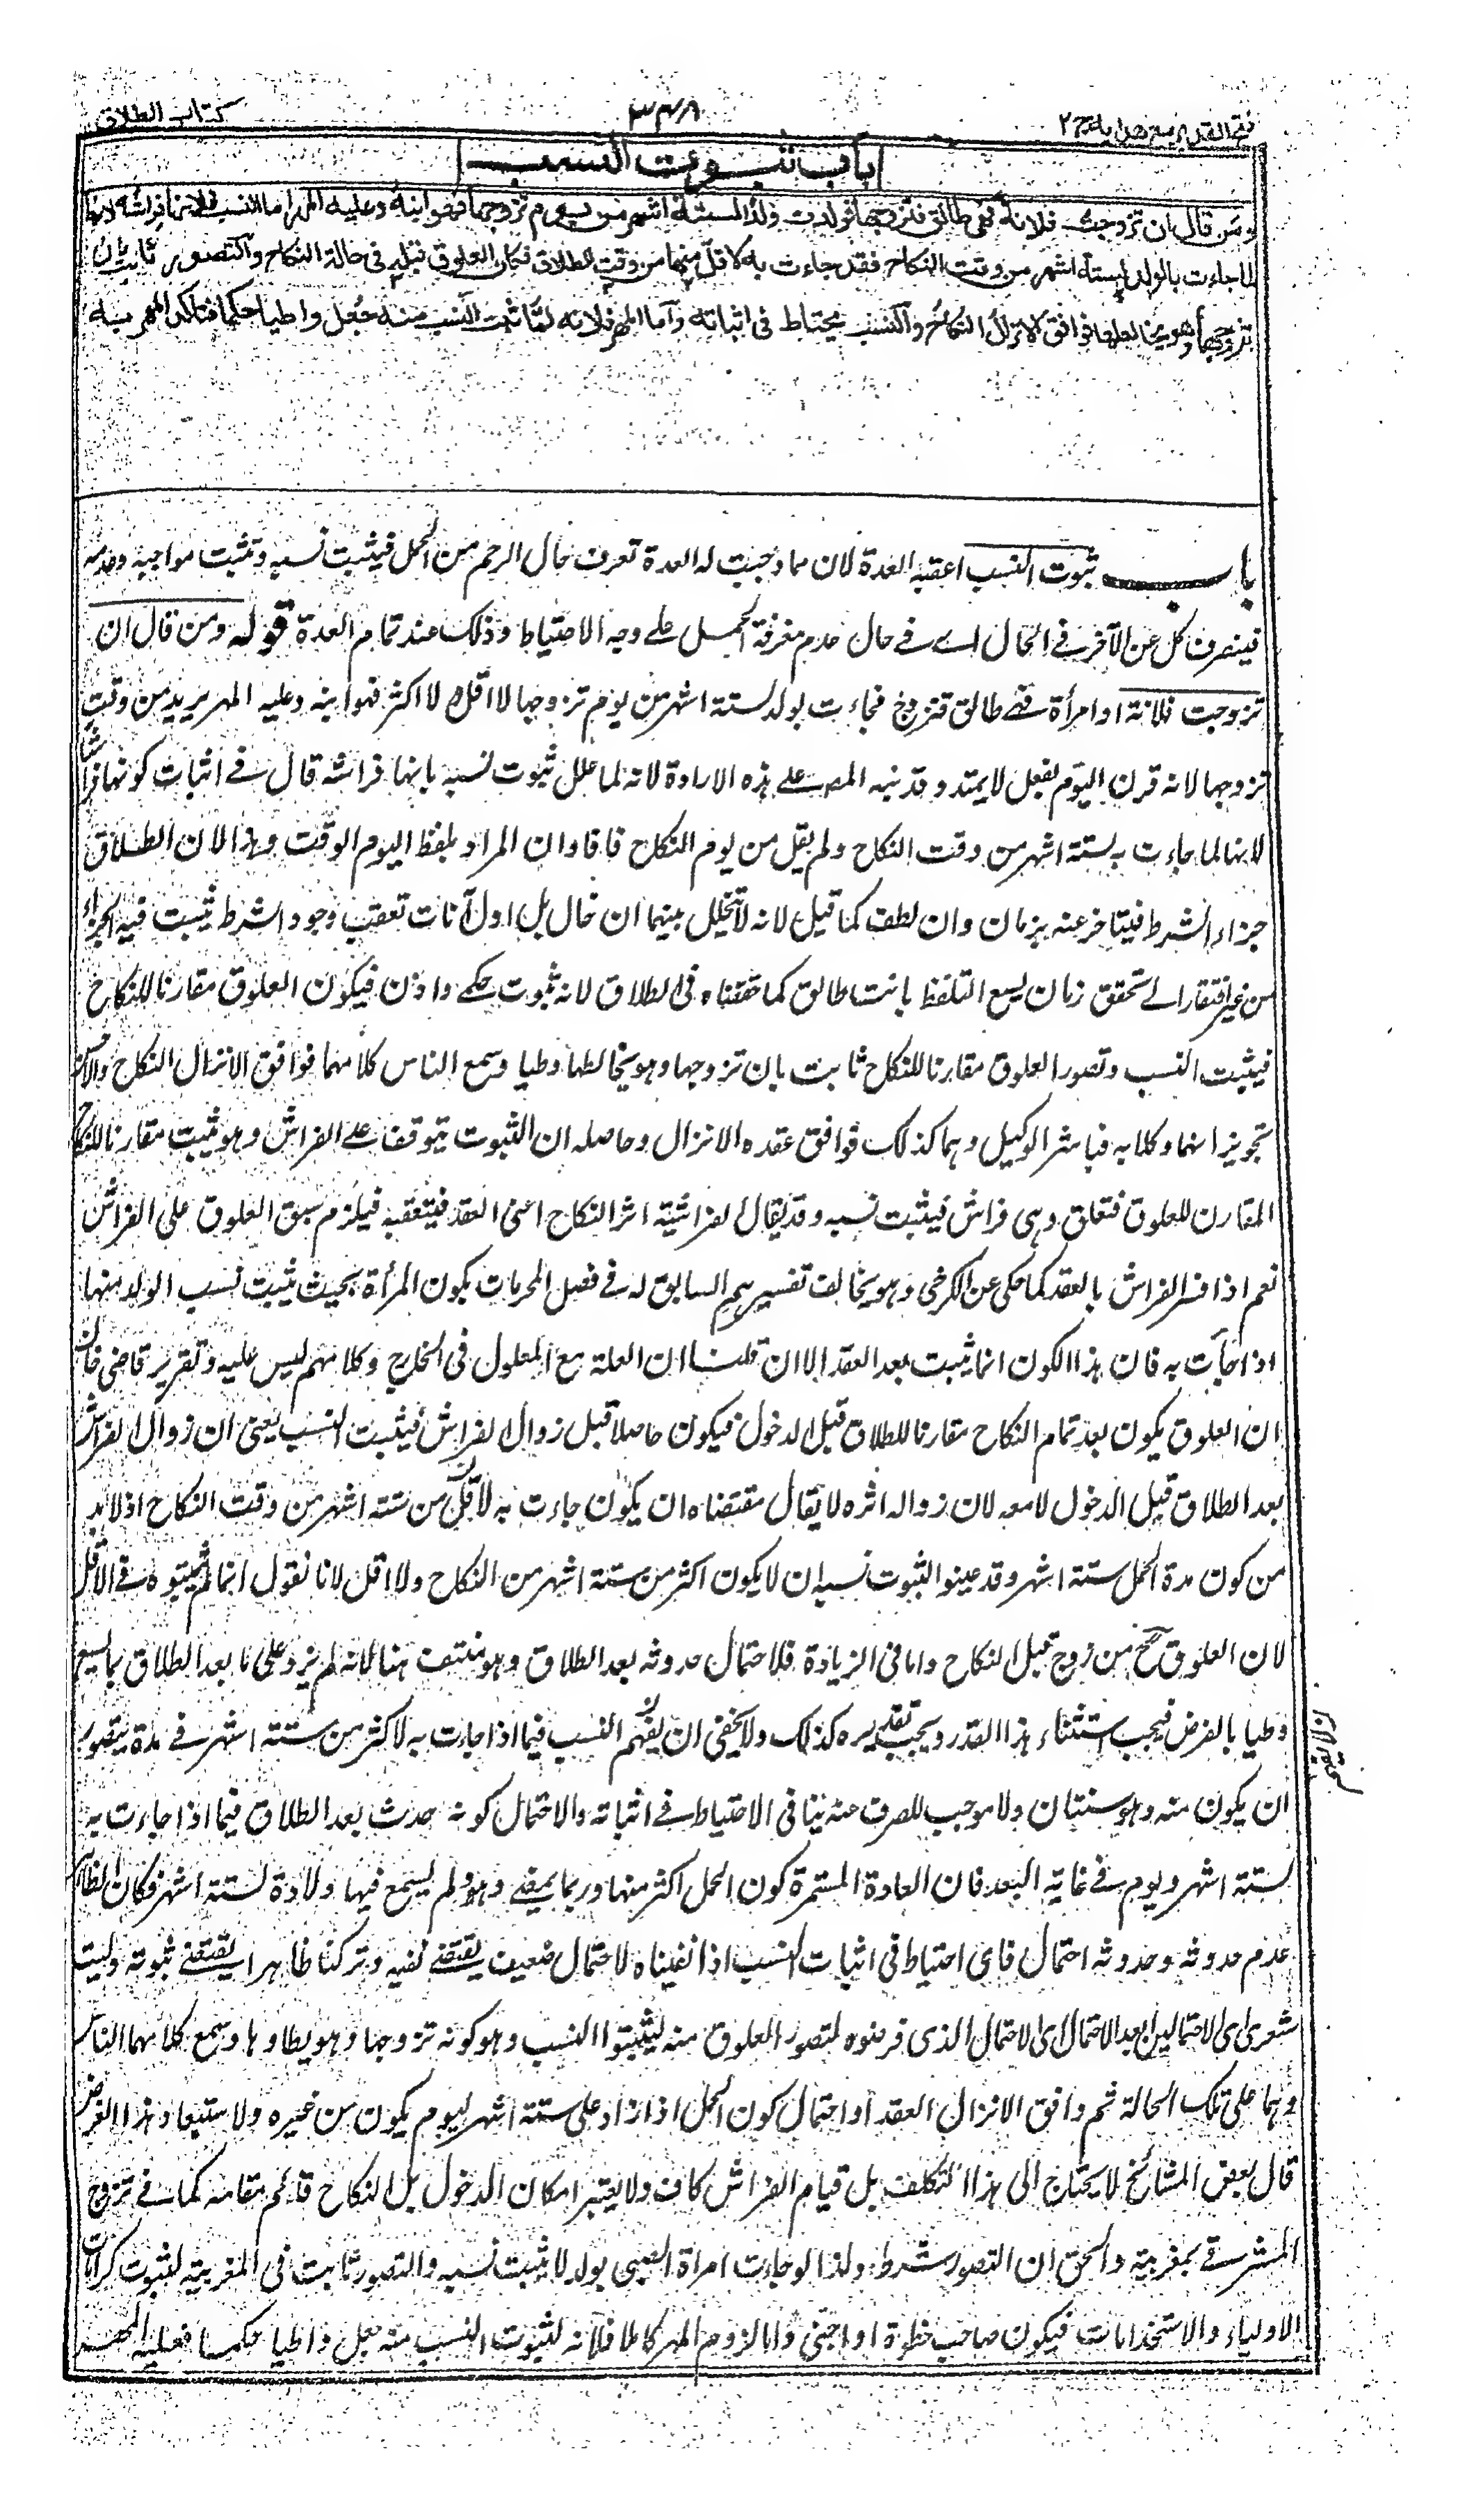 فتح القدير مع هدايه ج ٢
٣٤٨
كتاب الطلاق
باب ثبوت النسب
ومن قال ان تزوجت فلانة فهي طالق فتزوجها فولدت ولدا لستة اشهر من يوم تزوجها فهو ابنه وعليه المهر اما النسب فلانها فراشه لانها
لما جاءت بالولد لستة اشهر من وقت النكاح فقد جاءت به لاقل منها من وقت الطلاق فكان العلوق قبله في حالة النكاح والتصور ثابت بان
تزوجها وهو يخالطها فوافق الانزال النكاح والنسب يحتاط في اثباته واما المهر فلانه لما ثبت النسب منه جعل واطيا حكما فتاكد المهر به
باب ثبوت النسب اعقبه العدة لان مما وجبت له العدة تعرف حال الرحم من الحمل فيثبت نسبه وتثبت مواجبه وعدمه
فينصرف كل عن الآخر في الحال اے في حال عدم معرفة الحمل علے وجه الاحتياط وذلك عند تمام العدة قوله ومن قال ان
تزوجت فلانة او امرأة فهے طالق فتزوج فجاءت بولد لستة اشهر من يوم تزوجها لا اقل ولا اكثر فهو ابنه وعليه المهر يريد من وقت
تزوجها لانه قرن اليوم بفعل لا يمتد وقد نبه المصـ علے هذه الارادة لانه لما علل ثبوت نسبه بانها فراشه قال فے اثبات كونها فراشا
لانها لما جاءت به لستة اشهر من وقت النكاح ولم يقل من يوم النكاح فافاد ان المراد بلفظ اليوم الوقت وهذا لان الطلاق
جزاء الشرط فيتاخر عنه بزمان وان لطف كما قيل لانه لا تخلل بينهما ان خال بل اول آنات تعقب وجود الشرط يثبت فيه الجزاء
من غير افتقار الے تحقق زمان يسع التلفظ بانت طالق كما حققناه في الطلاق لانه ثبوت حكمے واذن فيكون العلوق مقارنا للنكاح
فيثبت النسب وتصور العلوق مقارنا للنكاح ثابت بان تزوجها وهو يخالطها وطيا وسمع الناس كلامهما فوافق الانزال النكاح والاحسن
تجويز انهما وكلا به فباشر الوكيل وهما كذلك فوافق عقده الانزال وحاصله ان الثبوت يتوقف علے الفراش وهو يثبت مقارنا للنكاح
المقارن للعلوق فتعلق وهي فراش فيثبت نسبه وقد يقال الفراشية اثر النكاح اعنى العقد فيتعقبه فيلزم سبق العلوق على الفراش
نعم اذا فسر الفراش بالعقد كما حكى عن الكرخي وهو يخالف تفسيرهم السابق له في فصل المحرمات بكون المرأة بحيث يثبت نسب الولد منها
اذا جاءت به فان هذا الكون انما يثبت بعد العقد الا ان قلنا ان العلة مع المعلول في الخارج وكلامهم ليس عليه وتقرير قاضي خان
ان العلوق يكون بعد تمام النكاح مقارنا للطلاق قبل الدخول فيكون حاصلا قبل زوال الفراش فيثبت النسب يعنى ان زوال الفراش
بعد الطلاق قبل الدخول لا معه لان زواله اثره لا يقال مقتضاه ان يكون جاءت به لاقل من ستة اشهر من وقت النكاح اذ لا بد
من كون مدة الحمل ستة اشهر وقد عينوا لثبوت نسبه ان لا يكون اكثر من ستة اشهر من النكاح ولا اقل لانا نقول انما لم يثبتوه في الاقل
لان العلوق ح من زوج قبل النكاح واما في الزيادة فلاحتمال حدوثه بعد الطلاق وهو منتف هنا لانه لم يزد على ما بعد الطلاق بما يسع
وطيا بالفرض فيجب استثناء هذا القدر ويجب تقديره كذلك ولا يخفى ان نفيهم النسب فيما اذا جاءت به لاكثر من ستة اشهر في مدة يتصور
ان يكون منه وهو سنتان ولا موجب للصرف عنه ينافي الاحتياط فے اثباته والاحتمال كونه حدث بعد الطلاق فيما اذا جاءت به
لستة اشهر ويوم فے غاية البعد فان العادة المستمرة كون الحمل اكثر منها وربما يمضے دهور لم يسمع فيها ولادة لستة اشهر فكان الظاهر
عدم حدوثه وحدوثه احتمال فاى احتياط في اثبات النسب اذا نفيناه لاحتمال ضعيف يقتضے نفيه وتركنا ظاهرا يقتضے ثبوته وليت
شعرى اى الاحتمالين ابعد الاحتمال اى الاحتمال الذى فرضوه لتصور العلوق منه ليثبتوا النسب وهو كونه تزوجها وهو يطاوها وسمع كلامهما الناس
وهما على تلك الحالة ثم وافق الانزال العقد او احتمال كون الحمل اذا زاد على ستة اشهر ليوم يكون من غيره ولاستبعاد هذا الفرض
قال بعض المشائخ لا يحتاج الى هذا التكلف بل قيام الفراش كاف ولا يعتبر امكان الدخول بل النكاح قائم مقامه كما فے تزوج
المشرقے بمغربية والحق ان التصور شرط ولذا لو جاءت امراة الصبى بولد لا يثبت نسبه والتصور ثابت في المغربية لثبوت كرامات
الاولياء والاستخدامات فيكون صاحب خطوة او جنى واما لزوم المهر كاملا فلانه لثبوت النسب منه جعل واطيا حكما فعليه المهر